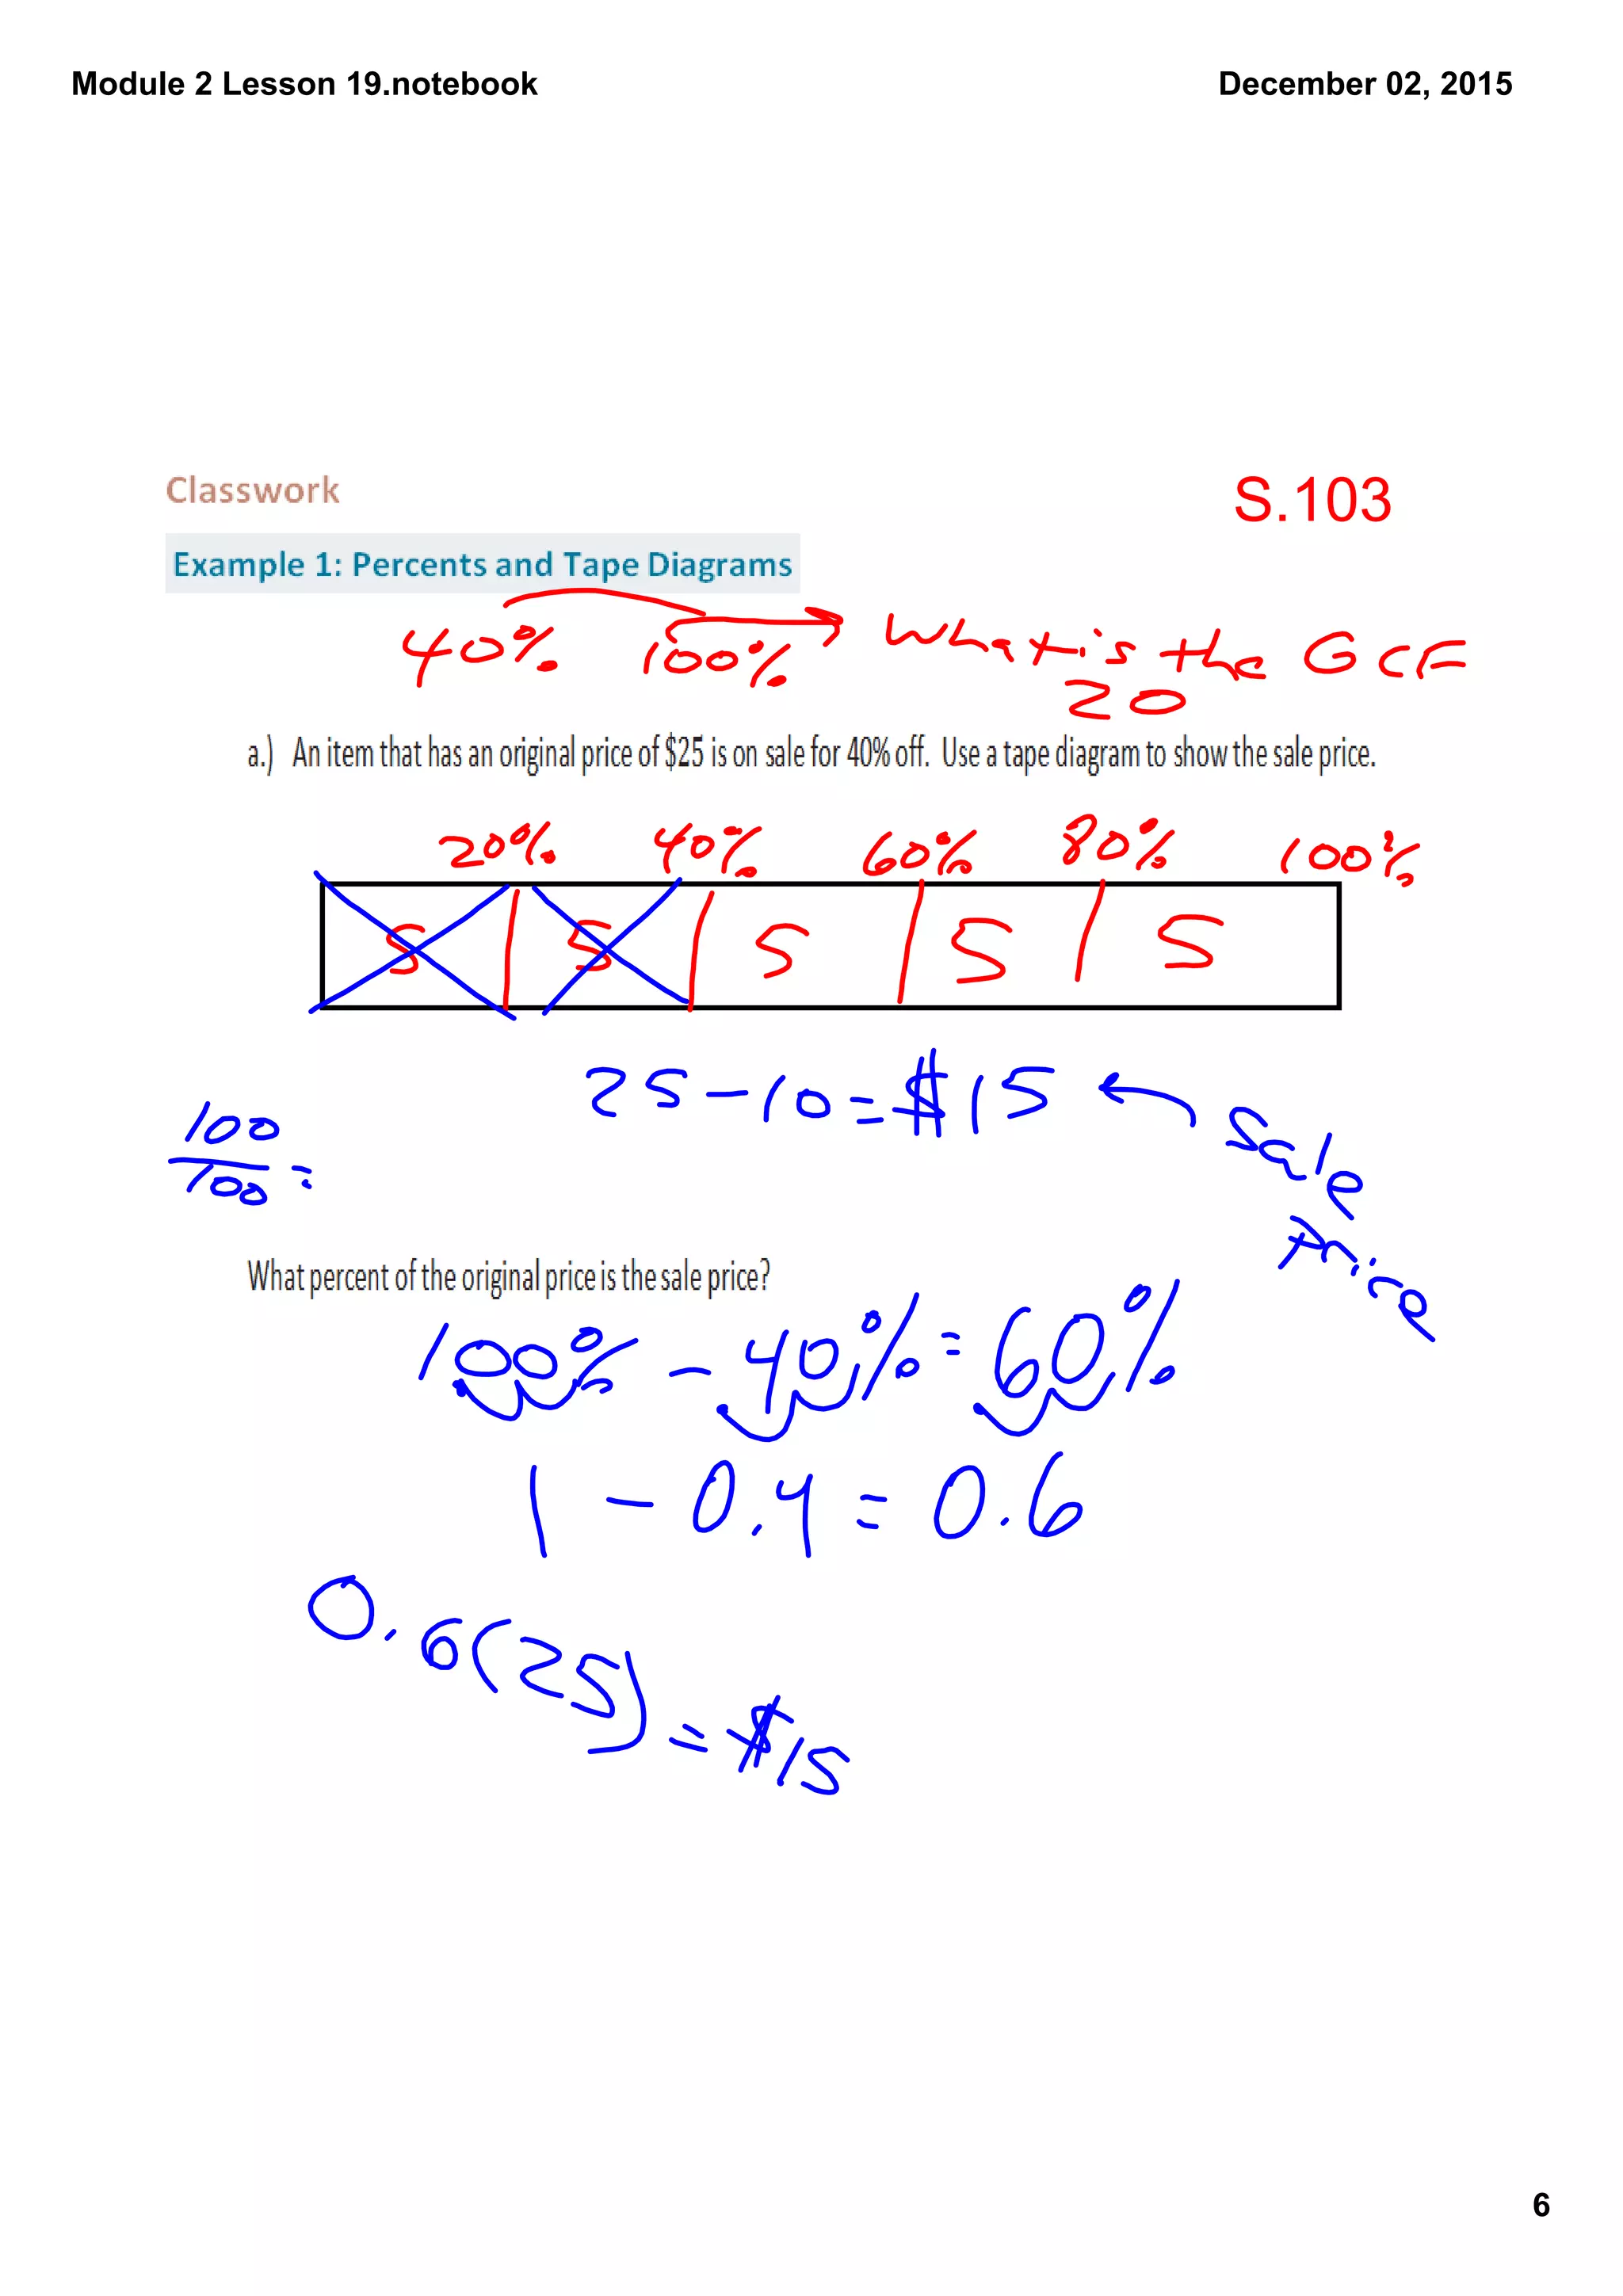 Module 2 Lesson 19.notebook December 02, 2015
Classwork S.103
Example 1: Percents and Tape Diagrams
40% 100% What is the GCF
20
a.) An item that has an original price of $25 is on sale for 40% off. Use a tape diagram to show the sale price.
20% 40% 60% 80% 100%
5 5 5 5 5
25-10=$15
Sale
Price
100
100 =
What percent of the original price is the sale price?
100% - 40% = 60%
1 - 0.4 = 0.6
0.6(25) = $15
6